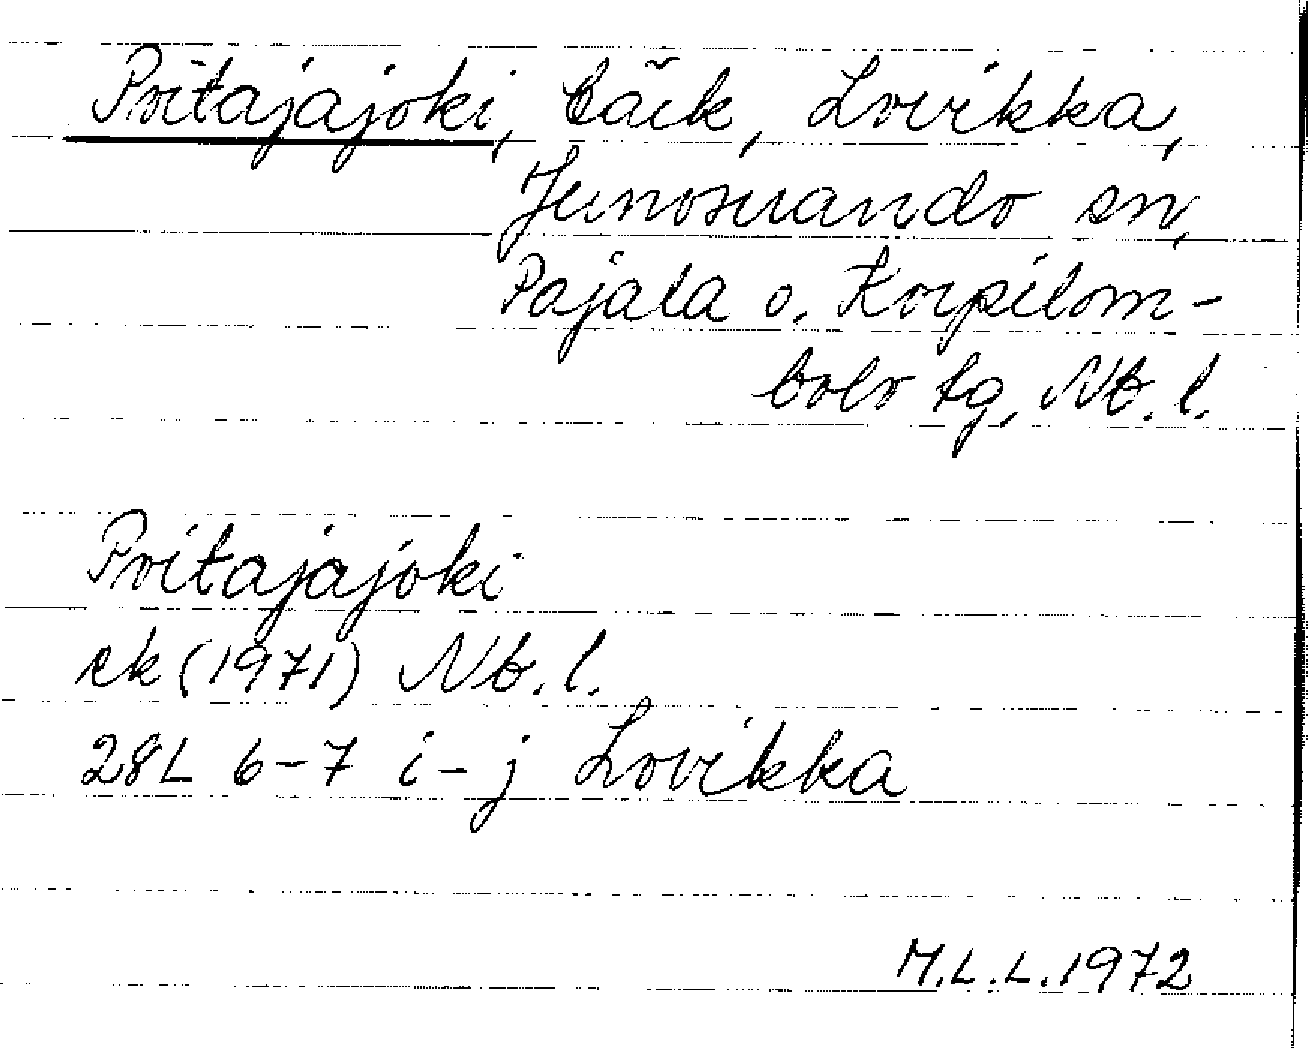 Pritajajoki, bäck, Lovikka,
Junosuando sn,
Pajala o. Korpilom-
bolo tg, Nb. l.
Pritajajoki
ek (1971) Nb. l.
28L 6-7 i-j Lovikka
M.L.L. 1972